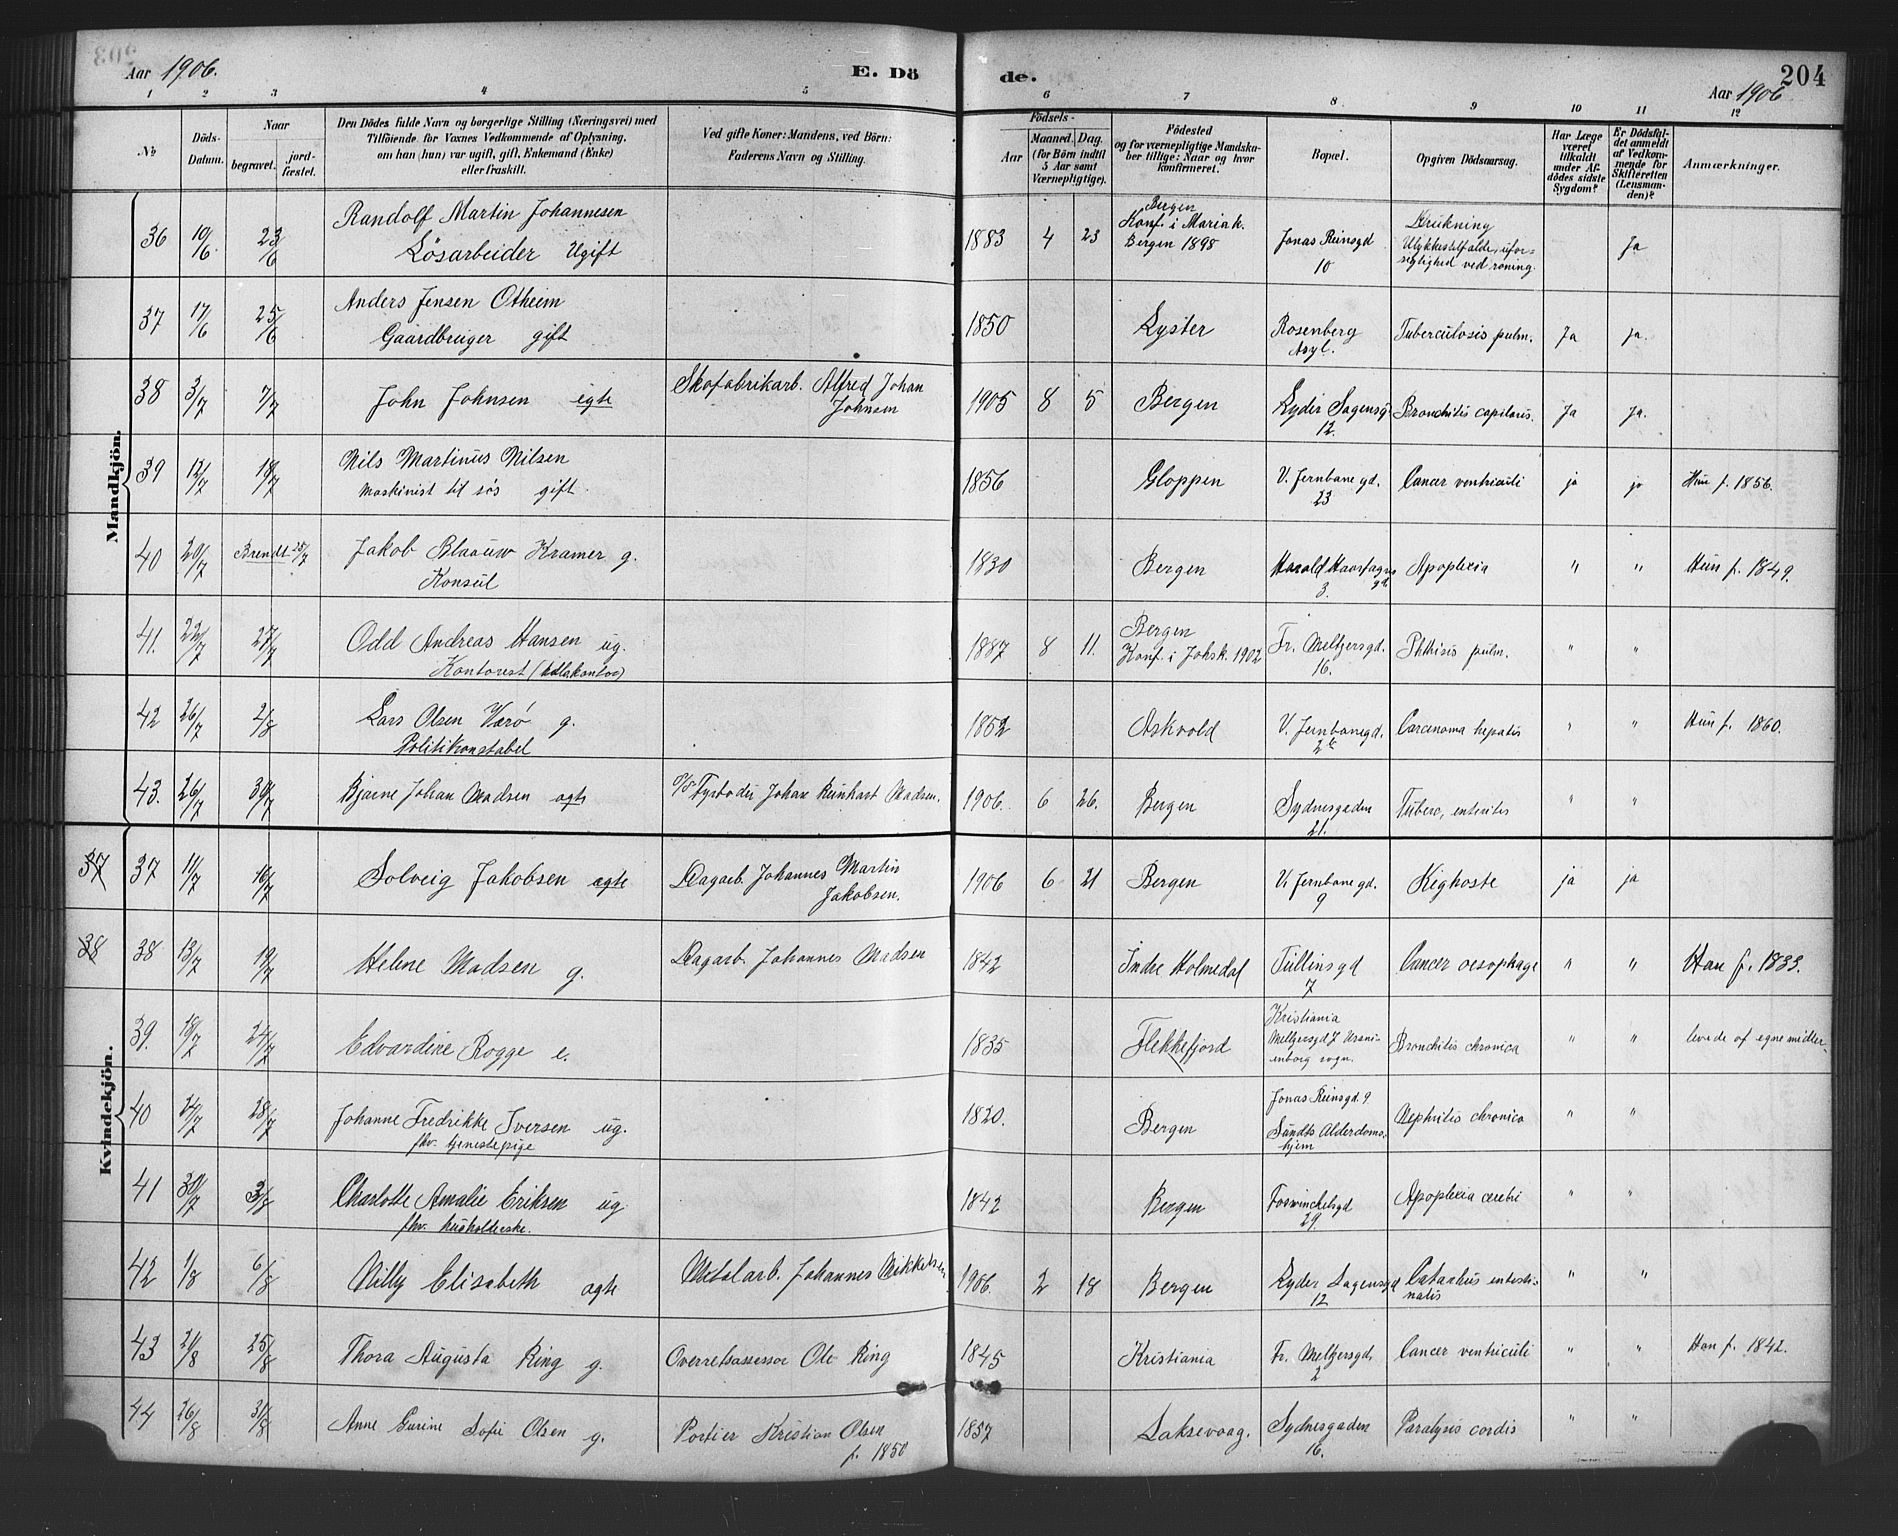 Aar 1906.
E. Dö
de.
204
Aar 1906
1 2 3 4 5 6 7 8 9 10 11 12
No
Döds-Datum.
Naar
begravet.
jord-fæstet.
Den Dödes fulde Navn og borgerlige Stilling (Næringsvei) med
Tilföiende for Voxnes Vedkommende af Oplysning,
om han (hun) var ugift, gift, Enkemand (Enke)
eller fraskilt.
Ved gifte Koner: Mandens, ved Börn:
Faderens Navn og Stilling.
Födsels-
Aar
Maaned. Dag.
(for Börn indtil
5 Aar samt
Værnepligtige).
Födested
og for værnepligtige Mandska-
ber tillige: Naar og hvor
konfirmeret.
Bopæl.
Opgiven Dödsaarsag.
Har Læge
været
tilkaldt
under Af-
dödes sidste
Sygdom?
Er Dödsfal-
det anmeldt
af Vedkom-
mende for
Skifteretten
(Lensman-
den)?
Anmærkninger.
Mandkjön.
36 10/6 23/6 Randolf Martin Johannesen
Løsarbeider Ugift
1883 4 23 Bergen
Konf. i Mariak.
Bergen 1898
Jonas Reinsgd
10
Drukning
Ulykkestilfælde, ufor-
sigtighed ved roning.
Ja
37 17/6 25/6 Anders Jensen Otheim
Gaardbruger gift
1850 Lyster Rosenberg
Asyl.
Tuberculosis pulm. Ja ja.
38 3/7 7/7 John Johnsen egte Skofabrikarb. Alfred Johan
Johnsen
1905 8 5 Bergen Lyder Sagensg.
12.
Bronchitis capilaris. Ja Ja.
39 12/7 18/7 Nils Martinus Nilsen
Maskinist til søs gift.
1856 Gloppen V. Jernbanegd.
23
Cancer ventriculi ja ja Hun f. 1856.
40 20/7 Brendt 25/7 Jakob Blaauw Kramer g.
Konsul
1830 Bergen Harald Haarfagres
gd.
3.
Apoplexia " " Hun f. 1849.
41. 22/7 27/7 Odd Andreas Hansen ug.
Kontorist
1887 8 11. Bergen
Konf. i Johsk. 1902
Fr. Meltzersgd.
16.
Phthisis pulm. " "
42 26/7 2/8 Lars Olsen Værö g.
Politikonstabel
1852 Askvold V. Jernbanegd.
Carcinoma hepatis " " Hun f. 1860.
43. 26/7 30/7 Bjarne Johan Madsen ægte Johan Reinhart Madsen.
1906. 6 26. Bergen Sydnesgaden
21.
Tuberc, enteritis " "
Kvindekjön.
37 37 11/7 16/7 Solveig Jakobsen ægte Dagarb. Johannes Martin
Jakobsen.
1906 6 21 Bergen V. Jernbanegd.
9
Kighoste ja ja
38 38 13/7 19/7 Helene Madsen g. Dagarb. Johannes Madsen
1842 Indre Holmedal Tullinsgd
7
Cancer oesophage " " Han f. 1833.
39. 18/7 24/7 Edvardine Rogge e.
1835 Flekkefjord Kristiania
Meltzersgd 7 Urani-
enborg sogn.
Bronchitis chronica " " levede af egne midler.
40 24/7 28/7 Johanne Fredrikke Iversen ug.
fhv. tjenestepige
1820. Bergen Jonas Reinsgd. 9
Sundts Alderdoms-
hjem
Nephritis chronica " "
41 30/7 3/8 Charlotte Amalie Eriksen ug
fhv. husholderske.
1842 Bergen Fosswinckelsgd
29.
Apoplexia cerebri " "
42 1/8 6/8 Nilly Elisabeth ægte Metalarb. Johannes Mikkelsen
1906. 2 18 Bergen Lyder Sagensgd
12
Catarhus intesti-
nalis
" "
43 21/8 25/8 Thora Augusta Ring g. Overretsassessor Ole Ring
1845 Kristiania Fr. Meltzersgd.
2
Cancer ventriculi " " Han f. 1842.
44 26/8 31/8 Anne Gurine Sofie Olsen g. Portier Kristian Olsen
f. 1850
1857 Laksevaag. Sydnesgaden
16.
Paralysis cordis " "